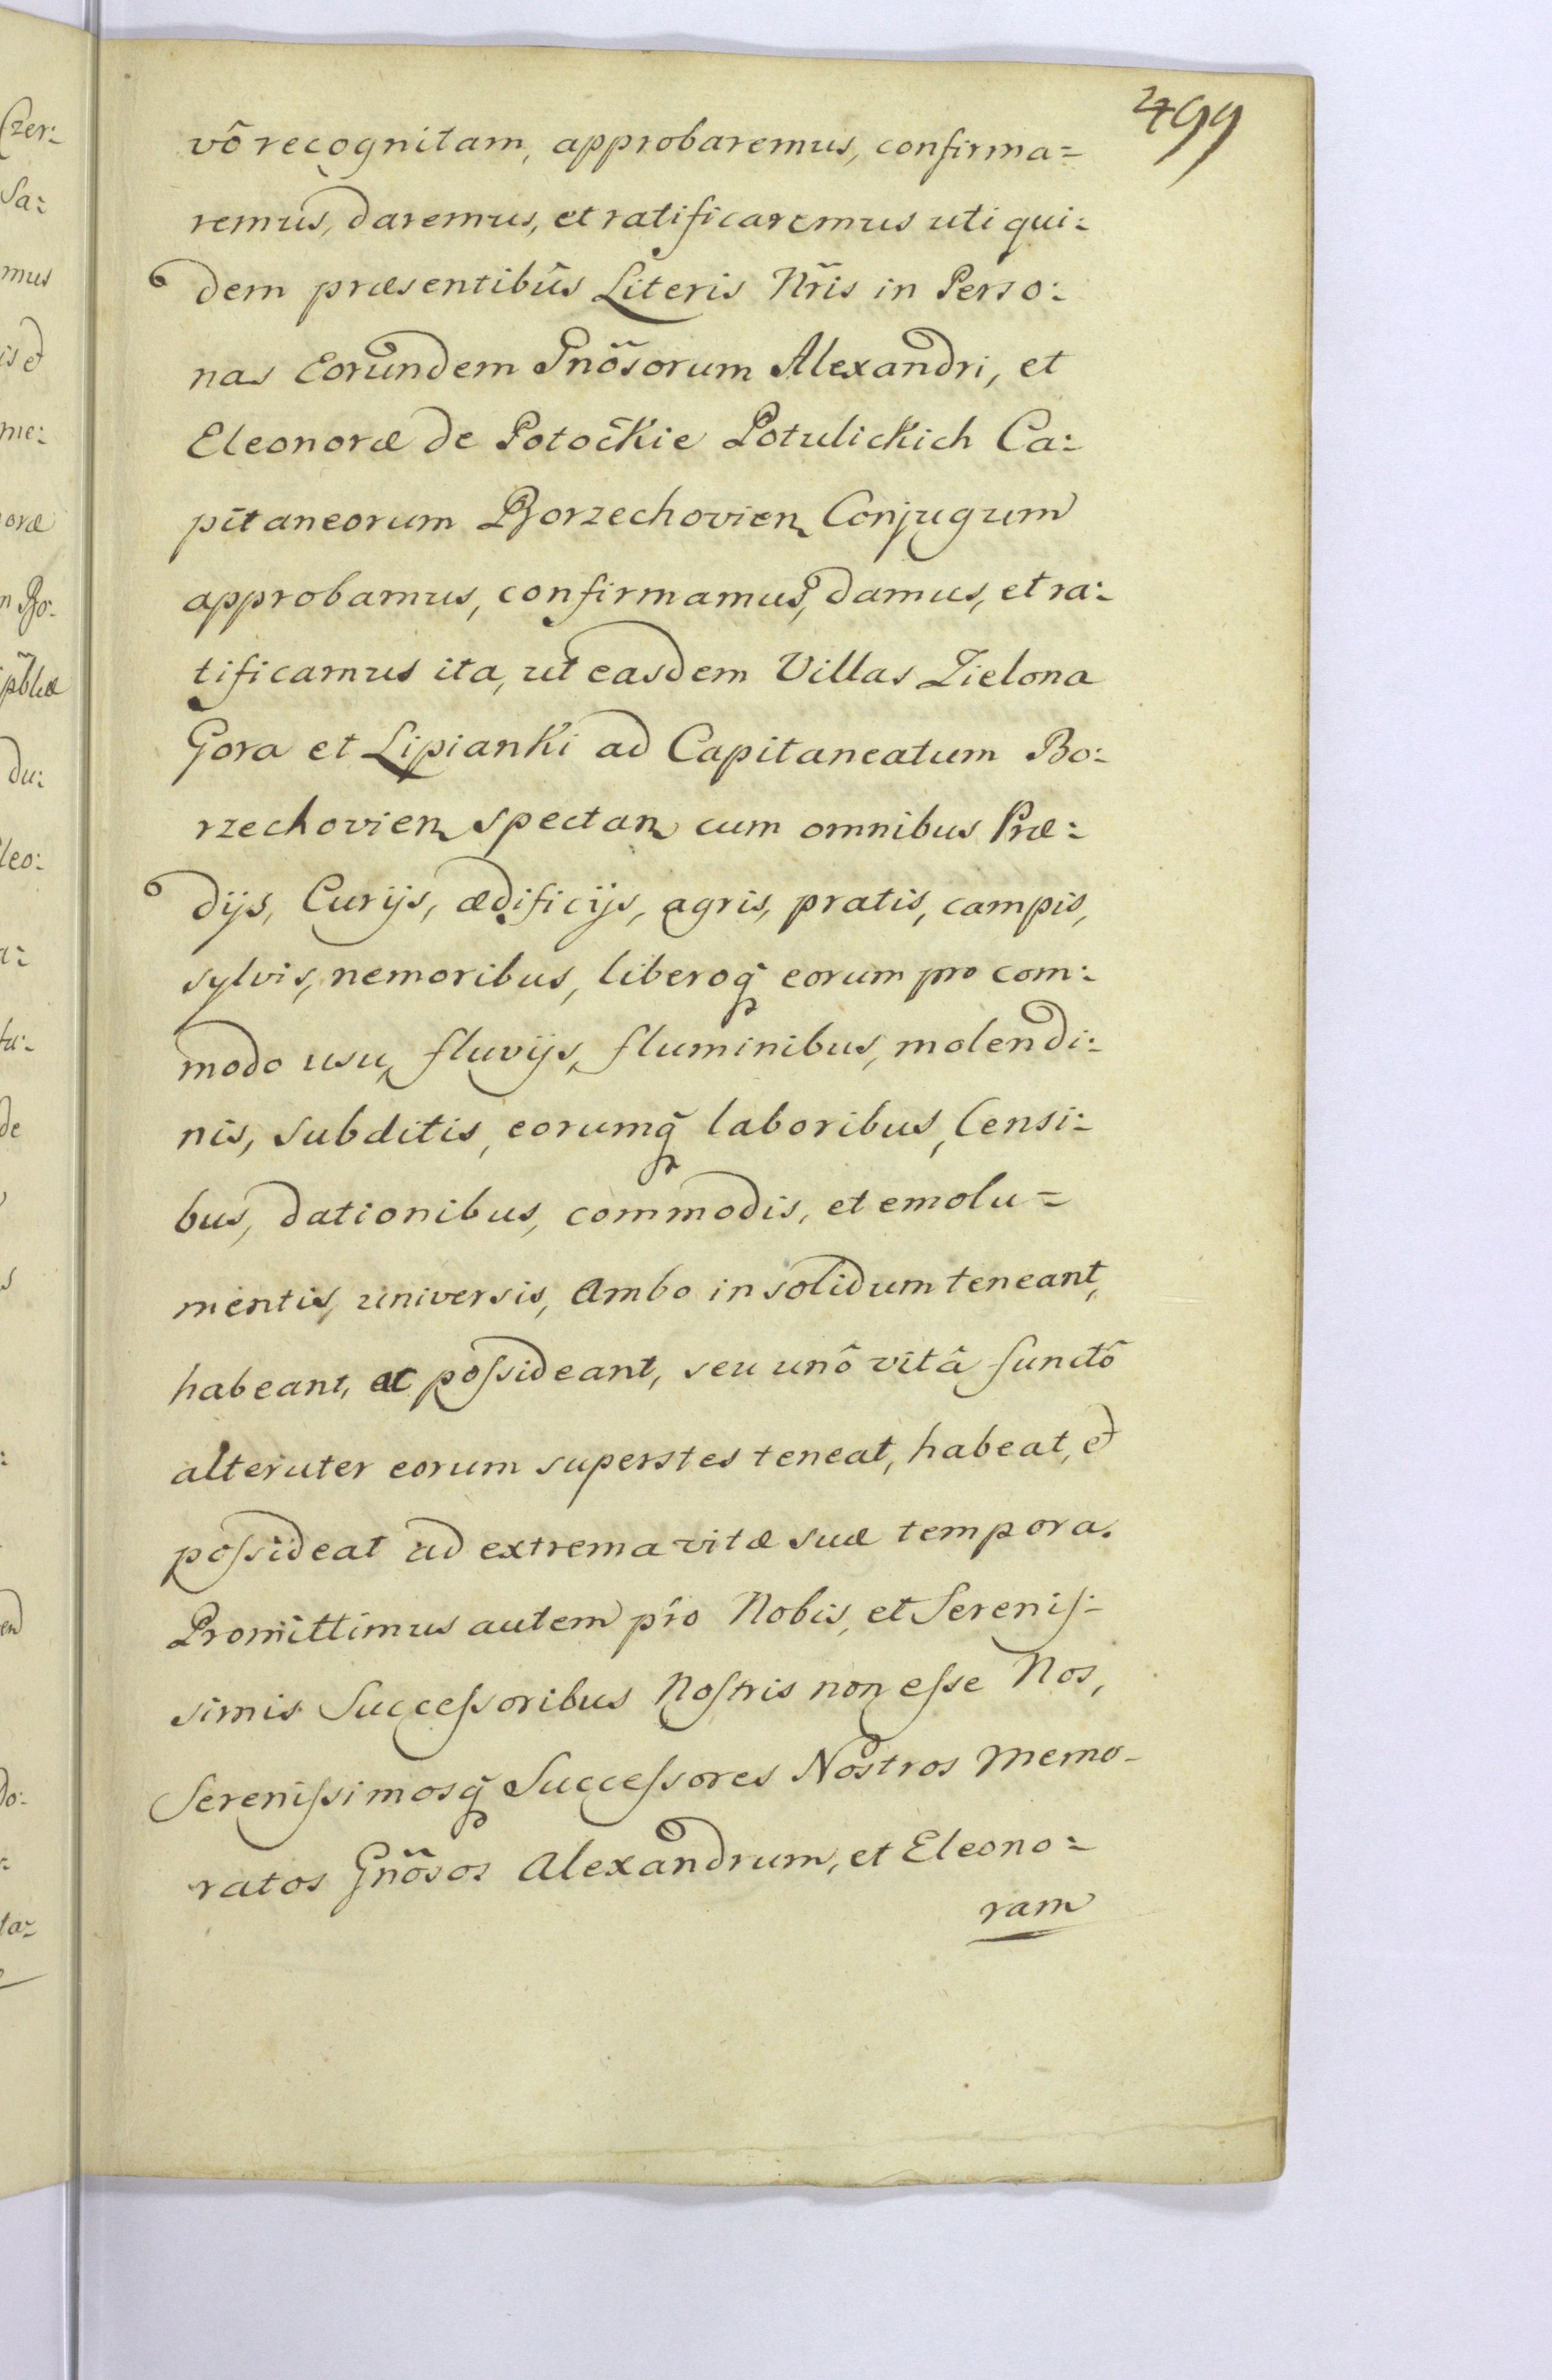 499
vô recognitam, approbaremus, confirma=
remus, daremus, et ratificaremus uti qui:
dem præsentibus Literis Nr̃is in Perso:
nas Eorundem Gnõsorum Alexandri, et
Eleonoræ de Potockie Potulickich Ca:
pitaneorum Borzechovien Conjugum
approbamus, confirmamus, damus, et ra:
tificamus ita, ut easdem Villas Zielona
Gora et Lipianki ad Capitaneatum Bo:
rzechovien spectan cum omnibus Præ:
dijs, Curijs, ædificijs, agris, pratis, campis,
sylvis, nemoribus, liberoq̃ eorum pro com:
modo usu, fluvijs, fluminibus, molendi:
nis, subditis, eorumq̃ laboribus, Censi:
bus, dationibus, commodis, et emolu=
mentis, universis, Ambo in solidum teneant,
habeant, ac poſsideant, seu unô vitâ functô
alteruter eorum superstes teneat, habeat, et
poſsideat ad extrema vitæ suæ tempora.
Promittimus autem pro Nobis, et Sereniſ:
simis Succeſsoribus Noſtris non eſse Nos,
Sereniſsimosq̃ Succeſsores Nostros memo-
ratos Gnõsos Alexandrum, et Eleono:
ram
Czer:
Sa:
mus
is et
me:
oræ
n Bo:
ipb̃læ
du:
leo:
a:
tu:
de
s
end
do:
ta: